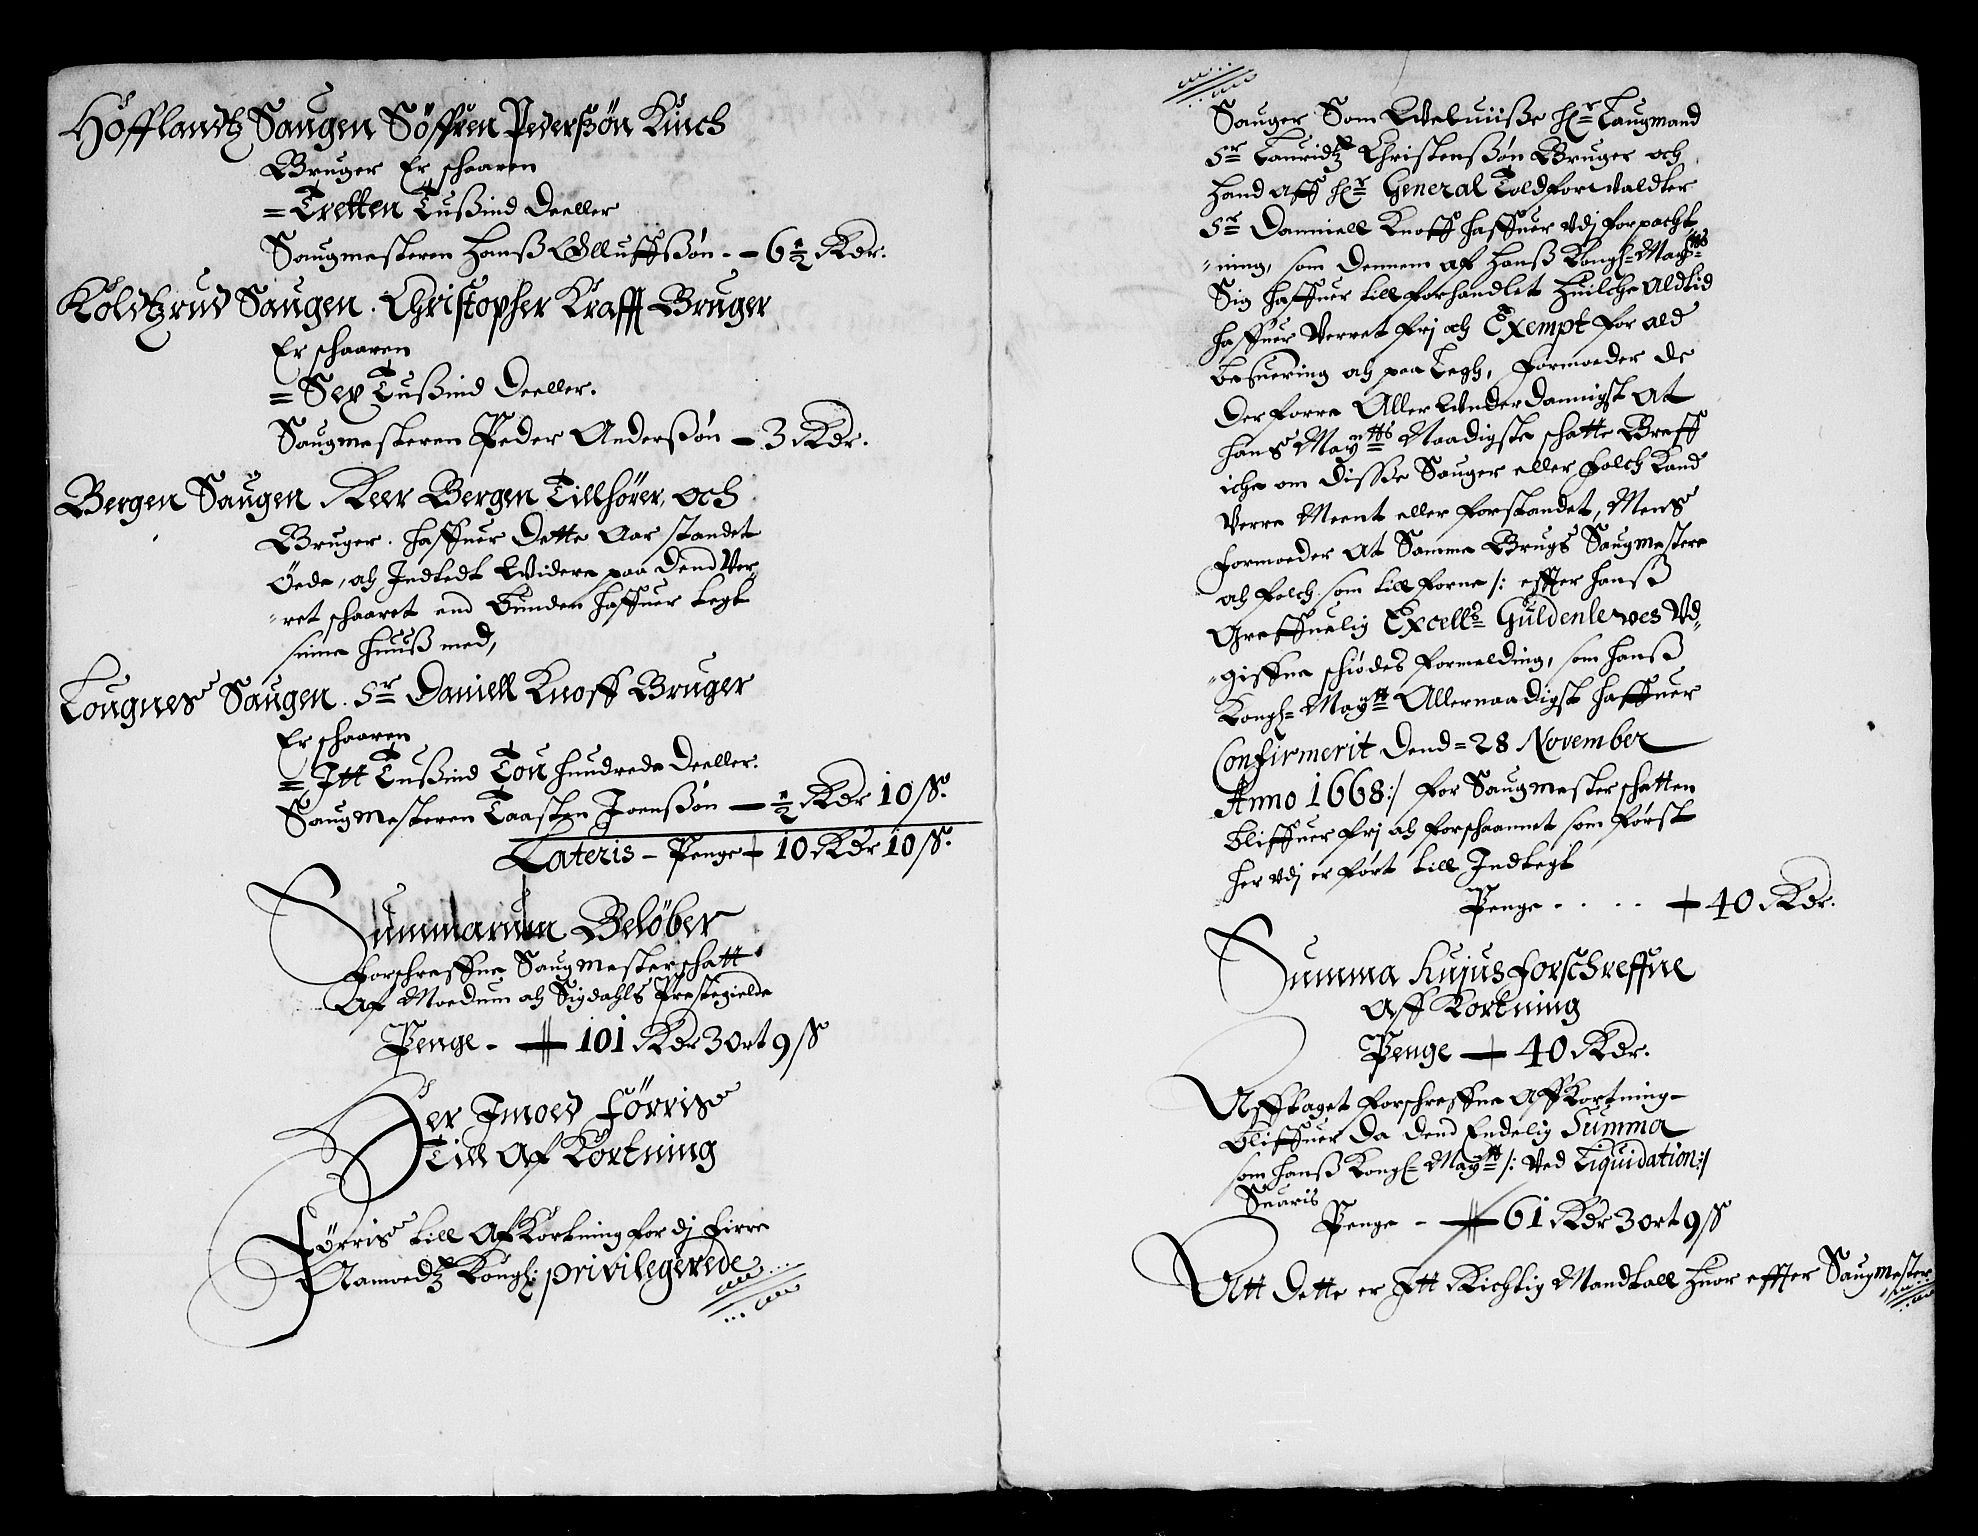 Höfflandtz Saugen Söffren Pederßøn Kinch
Bruger Er schaaren
= Tretten Tußind Deeller
Saugmesteren Hanß Olluffßøn - 6½ Rdr.
Koldtzrud Saugen. Christopher Krafft Bruger
Er schaaren
= Sex Tußind Deeller.
Saugmesteren Peder Anderßøn - 3 Rdr.
Bergen Saugen Reer Bergen Tillhörer, och
Bruger. haffuer dette Aar standet
Öede, och Indtedt Widere paa dend Ver,
"ret schaaret end Bunden haffuer legt
sinne Huuß med,
Lougnes Saugen. Sr Daniell Knoff Bruger
Er schaaren
= Itt Tußind Tou hundrede Deeller.
Saugmesteren Taasten Joenßøn - ½ Rdr 10 ß.
Lateris - Penge 10 Rdr 10 ß.
Summarum Belöber
Forschreffne Saugmesterschatt
Af Moedum och Sigdahls Prestegielde
Penge - 101 Rdr 3 ort 9 ß
Her Imoed Förris
Till Af Kortning
Förris till Af Kortning for dj Firre
Namoedtz Kongl: privilegerede
Sauger Som Welwiiße Hr Laugmand
Sr Lauridtz Christenßøn Bruger och
Hand aff Hr General Toldforwaldter
Sr Danniell Knoff haffuer udj forpacht
"ning, som dennem af Hanß Kongl: Mayts
Sig haffuer till forhandlet Huilche altid
haffuer Verret frj och Exempt for ald
besuering och paa Legh, Formoeder de
derforre Aller Underdannigst at
Hans Mayts Naadigste schatte Breff
iche om disße Sauger eller Folch kand
Verre Meent eller forstandet, Mens
formoeder at Samme Brugs Saugmestere
och folch som till forne /: effter Hanß
Greffuelig Excells Güldenlewes Ud,
"giffne schiødes formelding, som Hanß
Kongl: Maytt Allernaadigst haffuer
Confirmerit dend = 28 November
Anno 1668 :/ for Saugmester schatten
bliffuer frj och forschaannet som först
her udj er fört till Indtegt
Penge - - - - 40 Rdr.
Summa hujus forschreffne
Aff Kortning
Penge - 40 Rdr.
Afftaget forschreffne Aff Kortning -
bliffuer da dend Endelig Summa
som Hanß Kongl: Maytt /: Ved Liquidation :/
Suaris
Penge - 61 Rdr 3 ort 9 ß
Att dette er Itt Richtig Mandtall Huor effter Saugmester